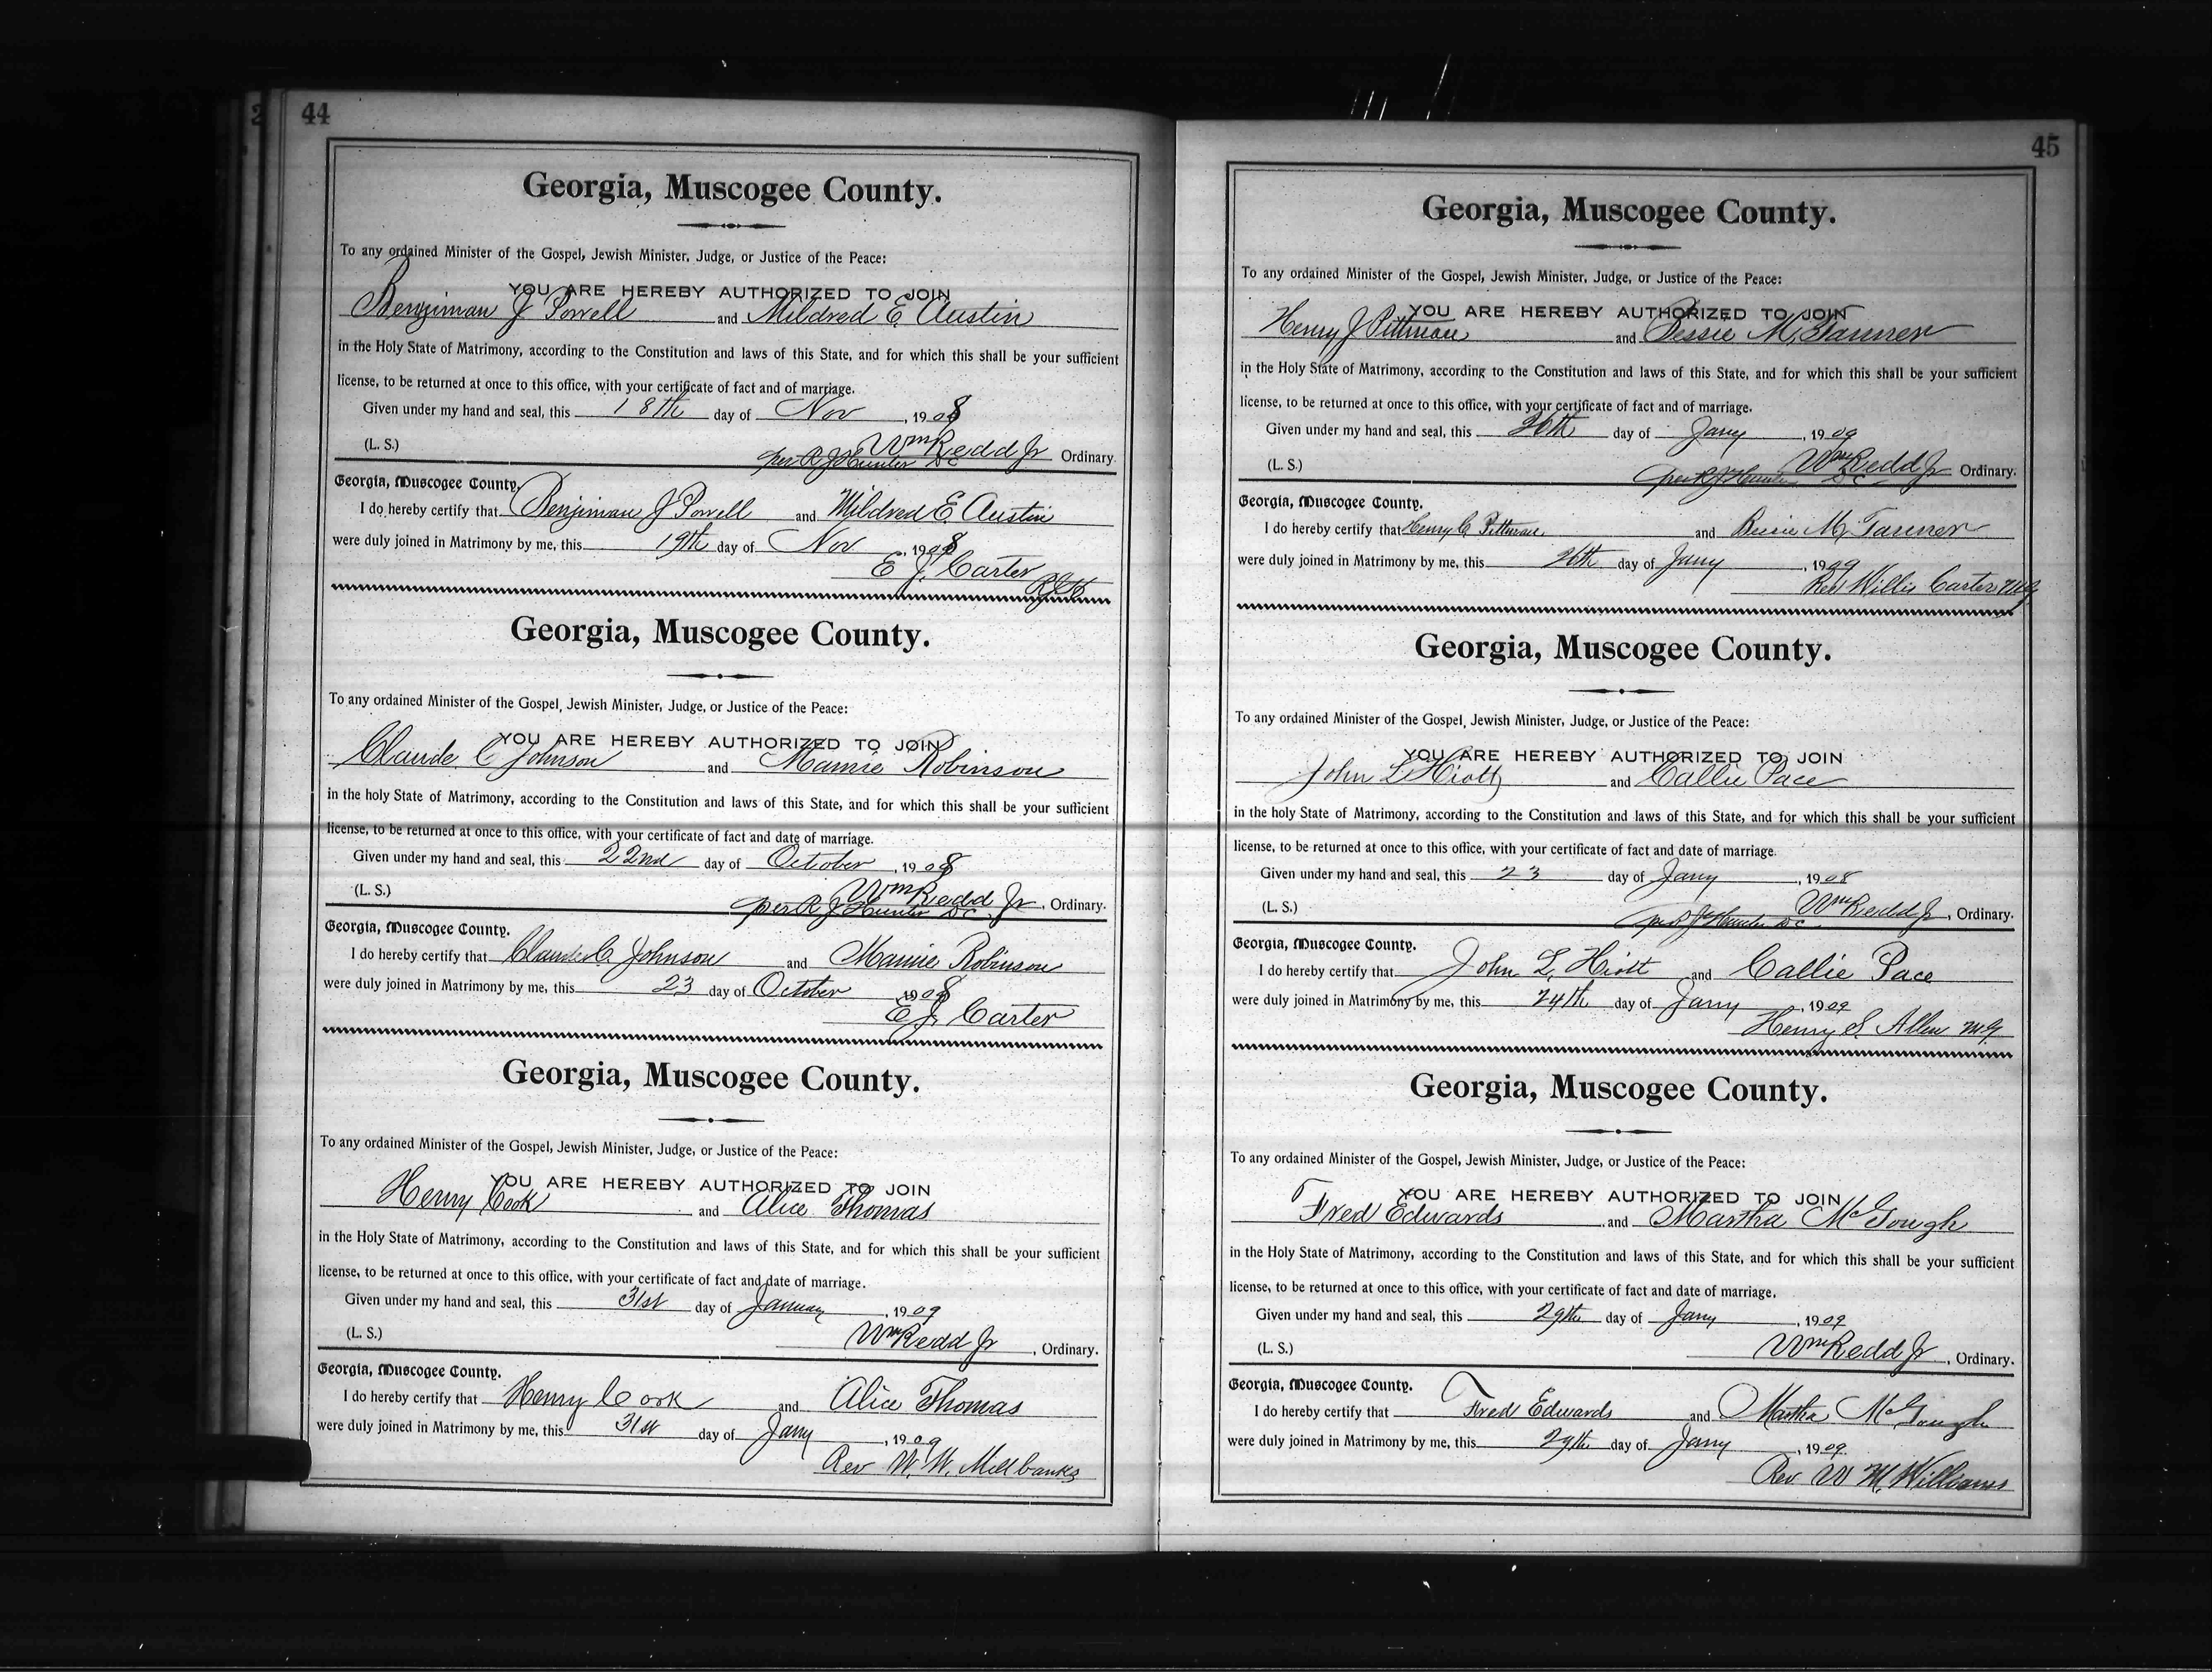 44
Georgia, Muscogee County.
To any ordained Minister of the Gospel, Jewish Minister, Judge, or Justice of the Peace:
YOU ARE HEREBY AUTHORIZED TO JOIN
Benjiman J Powell and Mildred E. Austin
in the Holy State of Matrimony, according to the Constitution and laws of this State, and for which this shall be your sufficient
license, to be returned at once to this office, with your certificate of fact and of marriage.
Given under my hand and seal, this 18th day of Nov, 1908
(L. S.) Wm Redd Jr Ordinary.
per R J Hunter DC
Georgia, Muscogee County.
I do hereby certify that Benjiman J Powell and Mildred E. Austin
were duly joined in Matrimony by me, this 19th day of Nov, 1908
E. J. Carter
Georgia, Muscogee County.
To any ordained Minister of the Gospel, Jewish Minister, Judge, or Justice of the Peace:
YOU ARE HEREBY AUTHORIZED TO JOIN
Claude C Johnson and Mamie Robinson
in the holy State of Matrimony, according to the Constitution and laws of this State, and for which this shall be your sufficient
license, to be returned at once to this office, with your certificate of fact and date of marriage.
Given under my hand and seal, this 22nd day of October, 1908
(L. S.) Wm Redd Jr, Ordinary.
per R J Hunter DC
Georgia, Muscogee County.
I do hereby certify that Claude C. Johnson and Mamie Robinson
were duly joined in Matrimony by me, this 23 day of October 1908
E J. Carter
Georgia, Muscogee County.
To any ordained Minister of the Gospel, Jewish Minister, Judge, or Justice of the Peace:
YOU ARE HEREBY AUTHORIZED TO JOIN
Henry Cook and Alice Thomas
in the Holy State of Matrimony, according to the Constitution and laws of this State, and for which this shall be your sufficient
license, to be returned at once to this office, with your certificate of fact and date of marriage.
Given under my hand and seal, this 31st day of January, 1909
(L. S.) Wm Redd Jr, Ordinary.
Georgia, Muscogee County.
I do hereby certify that Henry Cook and Alice Thomas
were duly joined in Matrimony by me, this 31st day of Jany, 1909
Rev W. W. Millbanks
45
Georgia, Muscogee County.
To any ordained Minister of the Gospel, Jewish Minister, Judge, or Justice of the Peace:
YOU ARE HEREBY AUTHORIZED TO JOIN
Henry J Pittman and Bessie M. Tanner
in the Holy State of Matrimony, according to the Constitution and laws of this State, and for which this shall be your sufficient
license, to be returned at once to this office, with your certificate of fact and of marriage.
Given under my hand and seal, this 26th day of Jany, 1909
(L. S.) Wm Redd Jr Ordinary.
per R J Hunter DC
Georgia, Muscogee County.
I do hereby certify that Henry C Pittman and Bessie M. Tanner
were duly joined in Matrimony by me, this 26th day of Jany, 1909
Rev Willis Carter MG
Georgia, Muscogee County.
To any ordained Minister of the Gospel, Jewish Minister, Judge, or Justice of the Peace:
YOU ARE HEREBY AUTHORIZED TO JOIN
John L Hiott and Callie Pace
in the holy State of Matrimony, according to the Constitution and laws of this State, and for which this shall be your sufficient
license, to be returned at once to this office, with your certificate of fact and date of marriage.
Given under my hand and seal, this 23 day of Jany, 1908
(L. S.) Wm Redd Jr, Ordinary.
per R J Hunter DC
Georgia, Muscogee County.
I do hereby certify that John L. Hiott and Callie Pace
were duly joined in Matrimony by me, this 24th day of Jany, 1909
Henry S. Allen MG
Georgia, Muscogee County.
To any ordained Minister of the Gospel, Jewish Minister, Judge, or Justice of the Peace:
YOU ARE HEREBY AUTHORIZED TO JOIN
Fred Edwards and Martha McGough
in the Holy State of Matrimony, according to the Constitution and laws of this State, and for which this shall be your sufficient
license, to be returned at once to this office, with your certificate of fact and date of marriage.
Given under my hand and seal, this 29th day of Jany, 1909
(L. S.) Wm Redd Jr, Ordinary.
Georgia, Muscogee County.
I do hereby certify that Fred Edwards and Martha McGough
were duly joined in Matrimony by me, this 29th day of Jany, 1909
Rev W M. Williams